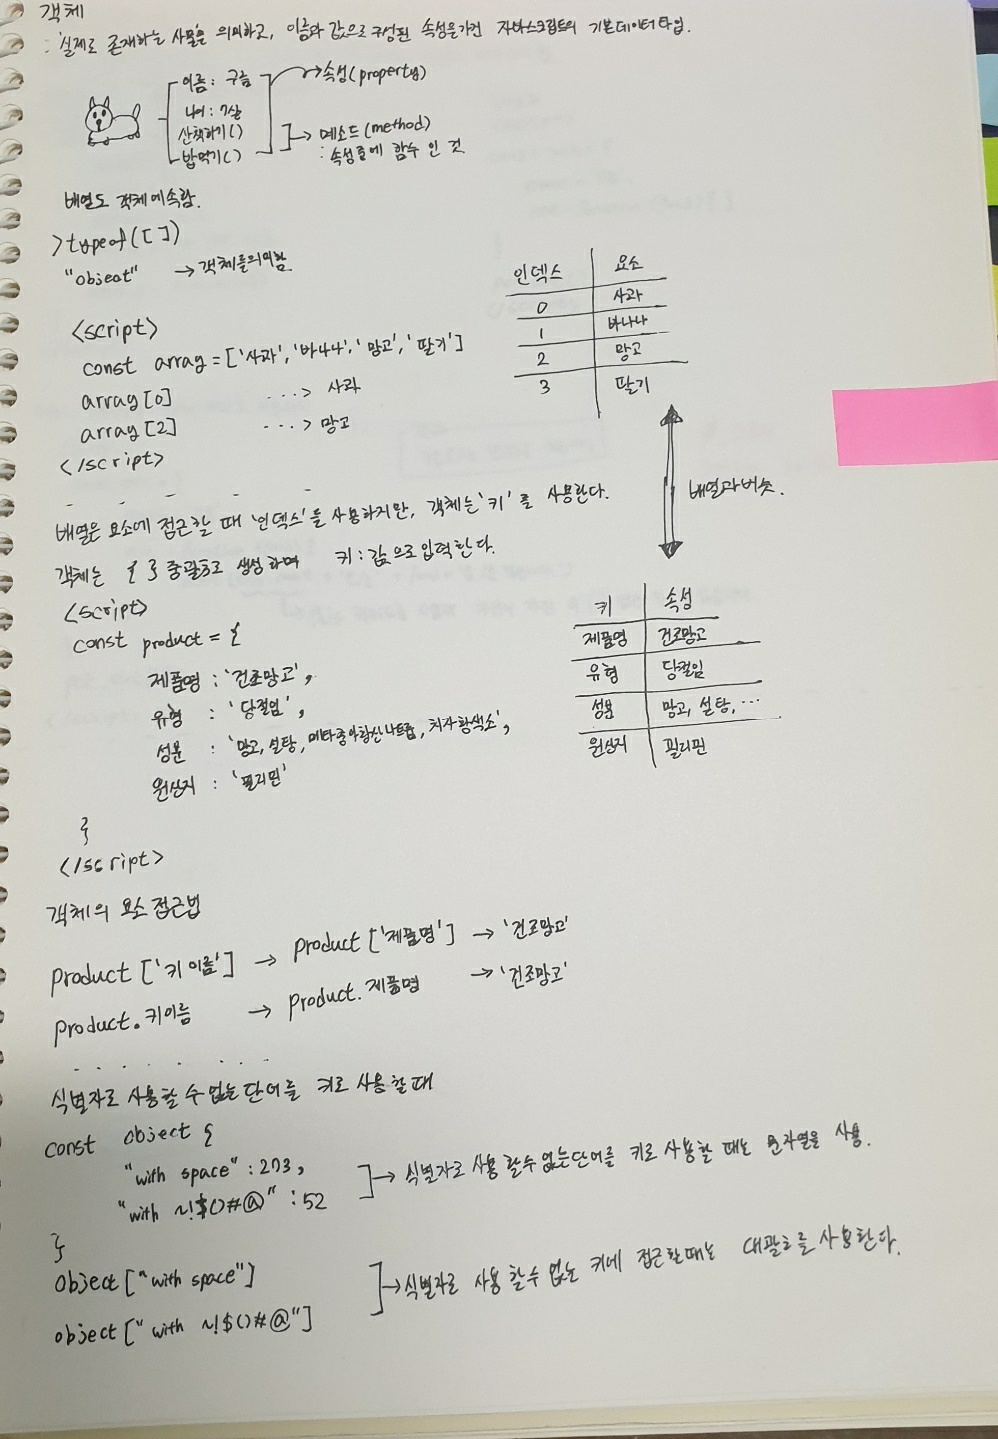 객체
: 실제로 존재하는 사물을 의미하고, 이름과 값으로 구성된 속성을가진 자바스크립트의 기본데이터타입.
이름 : 구름
나이 : 7살
산책하기( )
밥먹기( )
속성(property)
메소드(method)
: 속성중에 함수 인 것
배열도 객체에속함.
>typeof([ ])
"object" → 객체를의미함
<script>
const array = ['사과', '바나나', '망고', '딸기']
array[0] ...> 사과
array[2] ...> 망고
</script>
인덱스 요소
0 사과
1 바나나
2 망고
3 딸기
배열과비슷.
배열은 요소에 접근할 때 '인덱스'를 사용하지만, 객체는 '키' 를 사용한다.
객체는 { } 중괄호로 생성하며 키 : 값 으로 입력한다.
<script>
const product = {
제품명 : '건조망고',
유형 : '당절임',
성분 : '망고, 설탕, 메타중아황산나트륨, 치자황색소',
원산지 : '필리핀'
}
</script>
키 속성
제품명 건조망고
유형 당절임
성분 망고, 설탕, ...
원산지 필리핀
객체의 요소 접근법
product ['키 이름'] → product ['제품명'] → '건조망고'
product. 키이름 → product. 제품명 → '건조망고'
식별자로 사용할 수 없는 단어를 키로 사용할 때
const object {
"with space" : 273,
"with ~!$()#@" : 52
→ 식별자로 사용 할수 없는단어를 키로 사용할 때는 문자열을 사용.
}
object ["with space"]
object ["with ~!$()#@"]
→ 식별자로 사용 할수 없는 키에 접근할때는 대괄호를 사용한다.